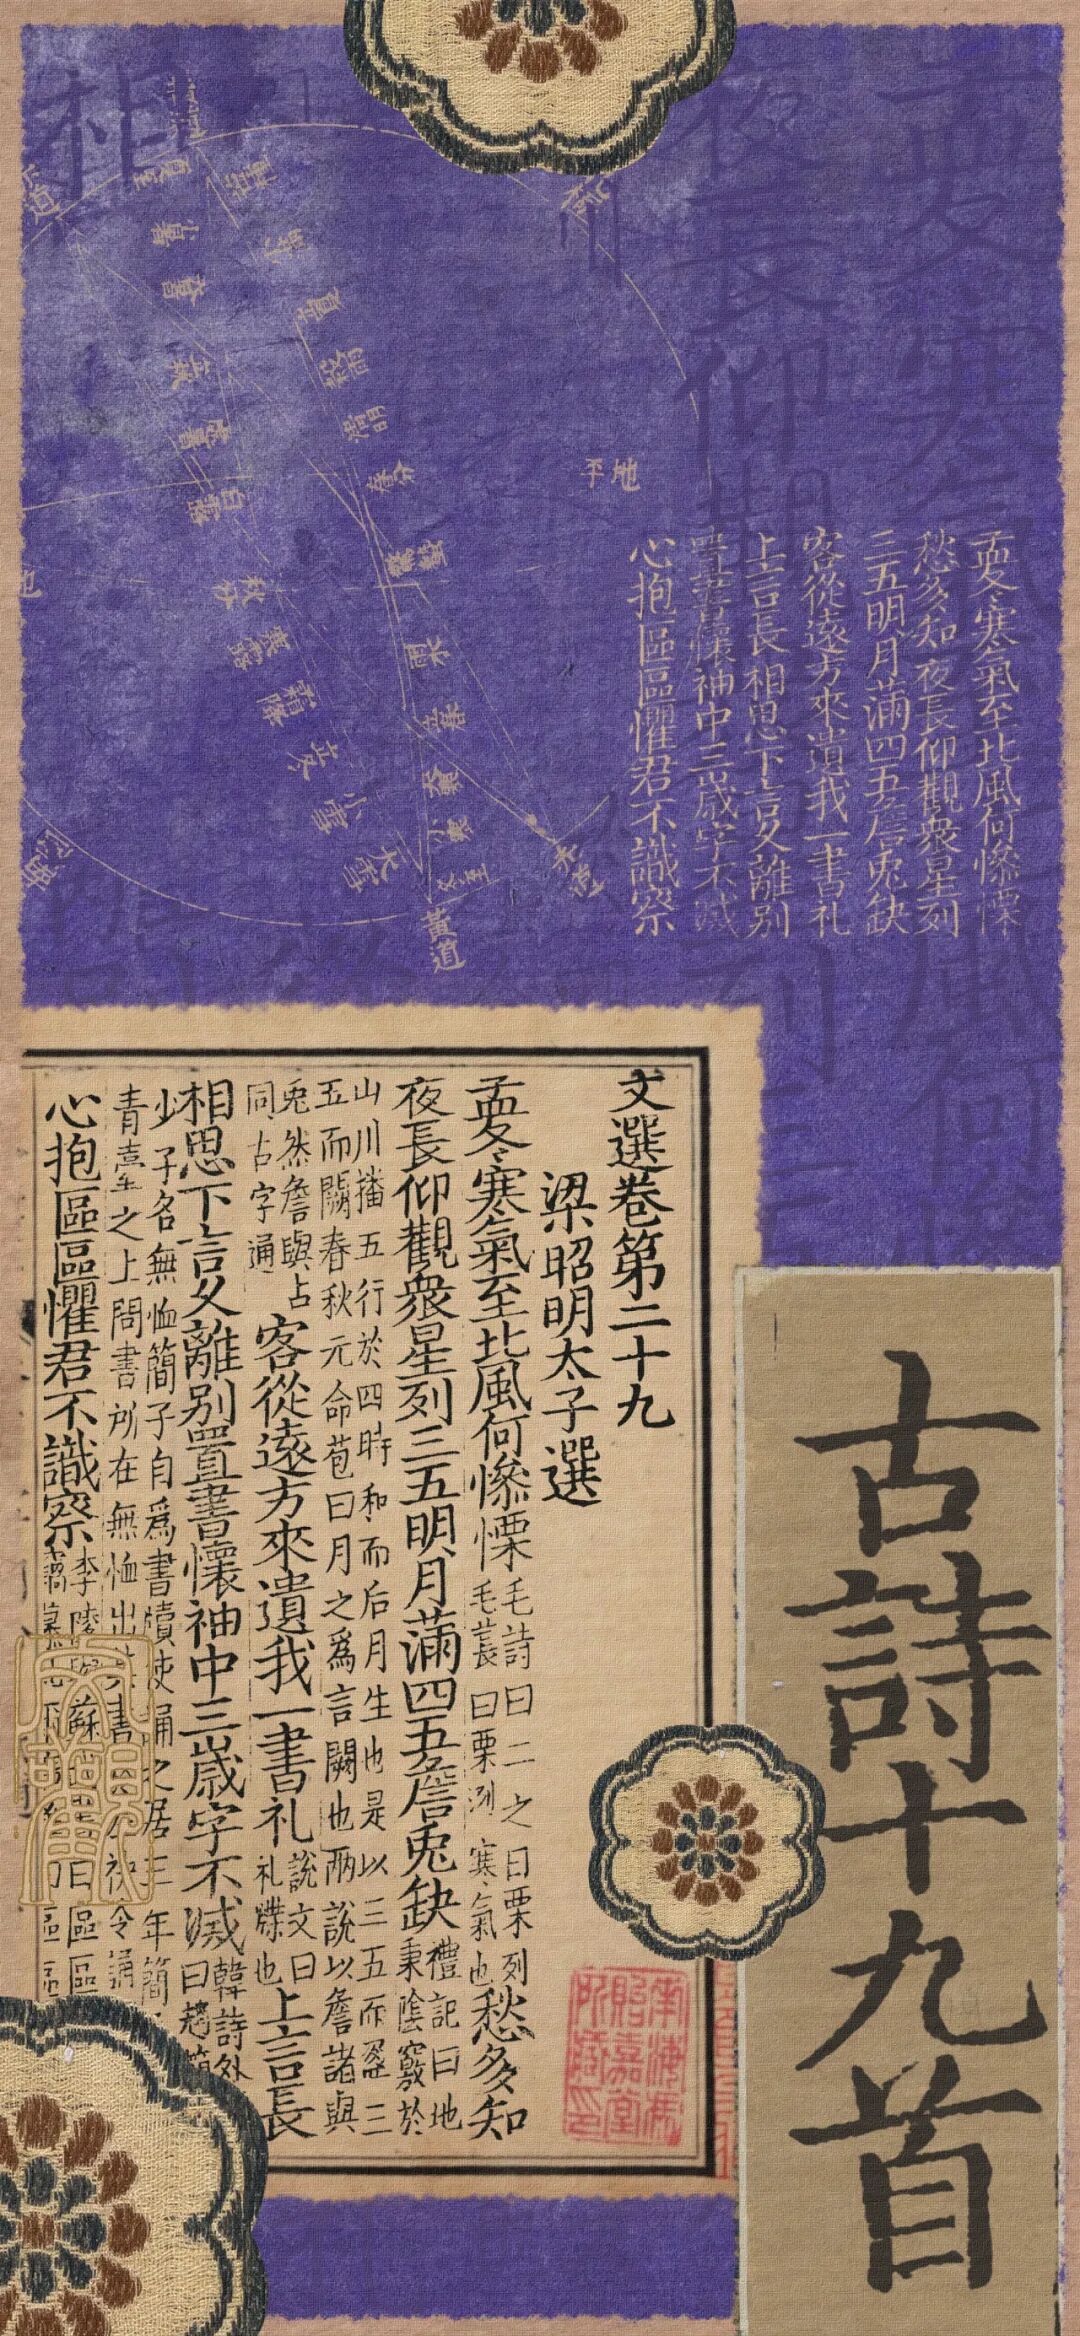 孟冬寒氣至北風何慘慄
愁多知夜長仰觀衆星列
三五明月滿四五詹兎缺
客從遠方來遺我一書礼
上言長相思下言久離别
置書懷袖中三歲字不滅
心抱區區懼君不識察
地平
黃道
夏至
小暑
大暑
立秋
處暑
白露
秋分
寒露
霜降
立冬
小雪
大雪
冬至
清明
春分
驚蟄
雨水
立春
大寒
小寒
古詩十九首
文選卷第二十九
梁昭明太子選
孟冬寒氣至北風何慘慄毛詩曰二之日栗列毛萇曰栗冽寒氣也愁多知
夜長仰觀衆星列三五明月滿四五詹兎缺禮記曰地秉陰竅於
山川播五行於四時和而后月生也是以三五而盈三
五而闕春秋元命苞曰月之爲言闕也兩說以詹諸與
兎然詹與占同古字通客從遠方來遺我一書礼說文曰礼牒也上言長
相思下言久離别置書懷袖中三歲字不滅韓詩外曰趙簡
少子名無恤簡子自爲書牘使誦之居三年簡
青臺之上問書所在無恤出其書令誦
心抱區區懼君不識察李陵蘇曰區區